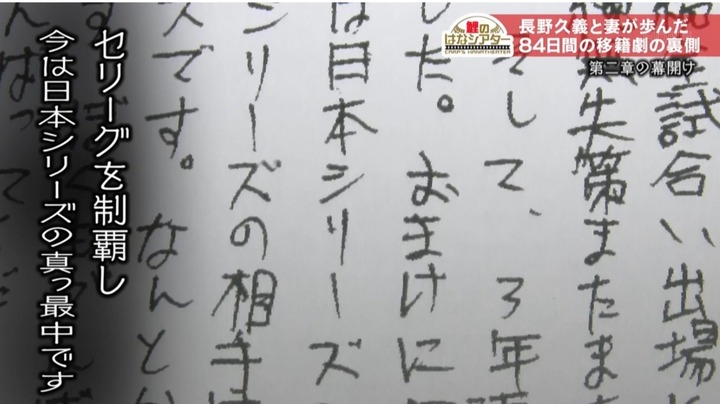 鯉の
はなシアター
CARP'S HANATHEATER
長野久義と妻が歩んだ
84日間の移籍劇の裏側
第二章の幕開け
試合い出場
失策またま
して、3年
した。おまけに
は日本シリーズ
シリーズの相手は
スです。なんとか
セリーグを制覇し
今は日本シリーズの真っ最中です